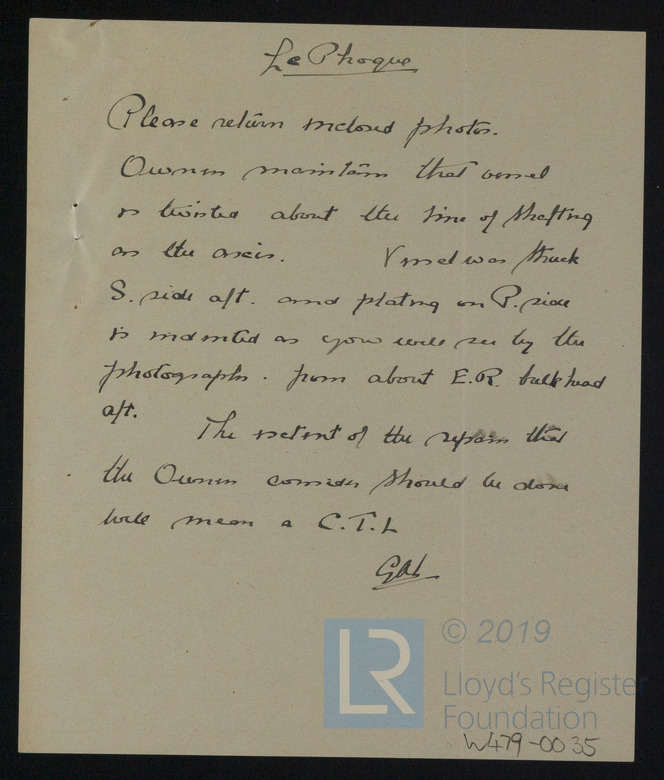 Le Phoque
Please return inclosed photos.
Owners maintain that vessel
is twisted about the line of shafting
as the axis. Vessel was struck
S. side aft. and plating on P. side
is indented as you will see by the
photographs. from about E.R. bulkhead
aft.
The extent of the repairs that
the Owners consider should be done
will mean a C.T.L
GAL
LR
© 2019
Lloyd's Register
Foundation
W479-0035